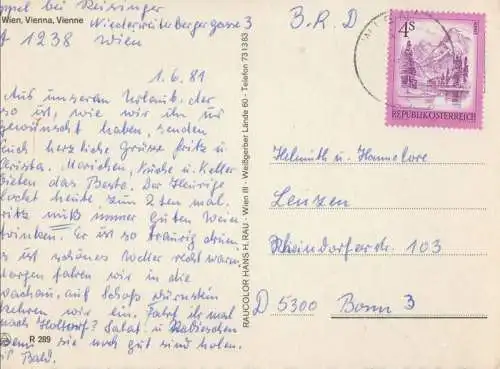 bei Reisinger
Wien, Vienna, Vienne
Niederreiterbergergasse 3
A 1238 Wien
1.6.81
Aus unserem Urlaub, der
so ist, wie wir ihn
gewünscht haben, senden
Euch herzliche Grüsse Fritz u.
Christa. Marichen, Küche u. Keller
bieten das Beste. Der Heurige
lockt heute zum 2ten mal.
Fritz muß immer guten Wein
trinken. Er ist so traurig drum.
es ist schönes Wetter recht warm.
Morgen fahren wir in die
Wachau, auf Schoß Dürnstein
kehren wir ein. Fahrt ihr mal
nach Holtorf? Salat u. Radieschen
sie noch gut sind holen.
Bis Bald.
R 289
RAUCOLOR HANS H. RAU - Wien III - Weißgerber Lände 60 - Telefon 731383
B.R.D
4S
REPUBLIK ÖSTERREICH
Helmuth u. Hannelore
Lenzen
Rheindorferstr. 103
D 5300 Bonn 3